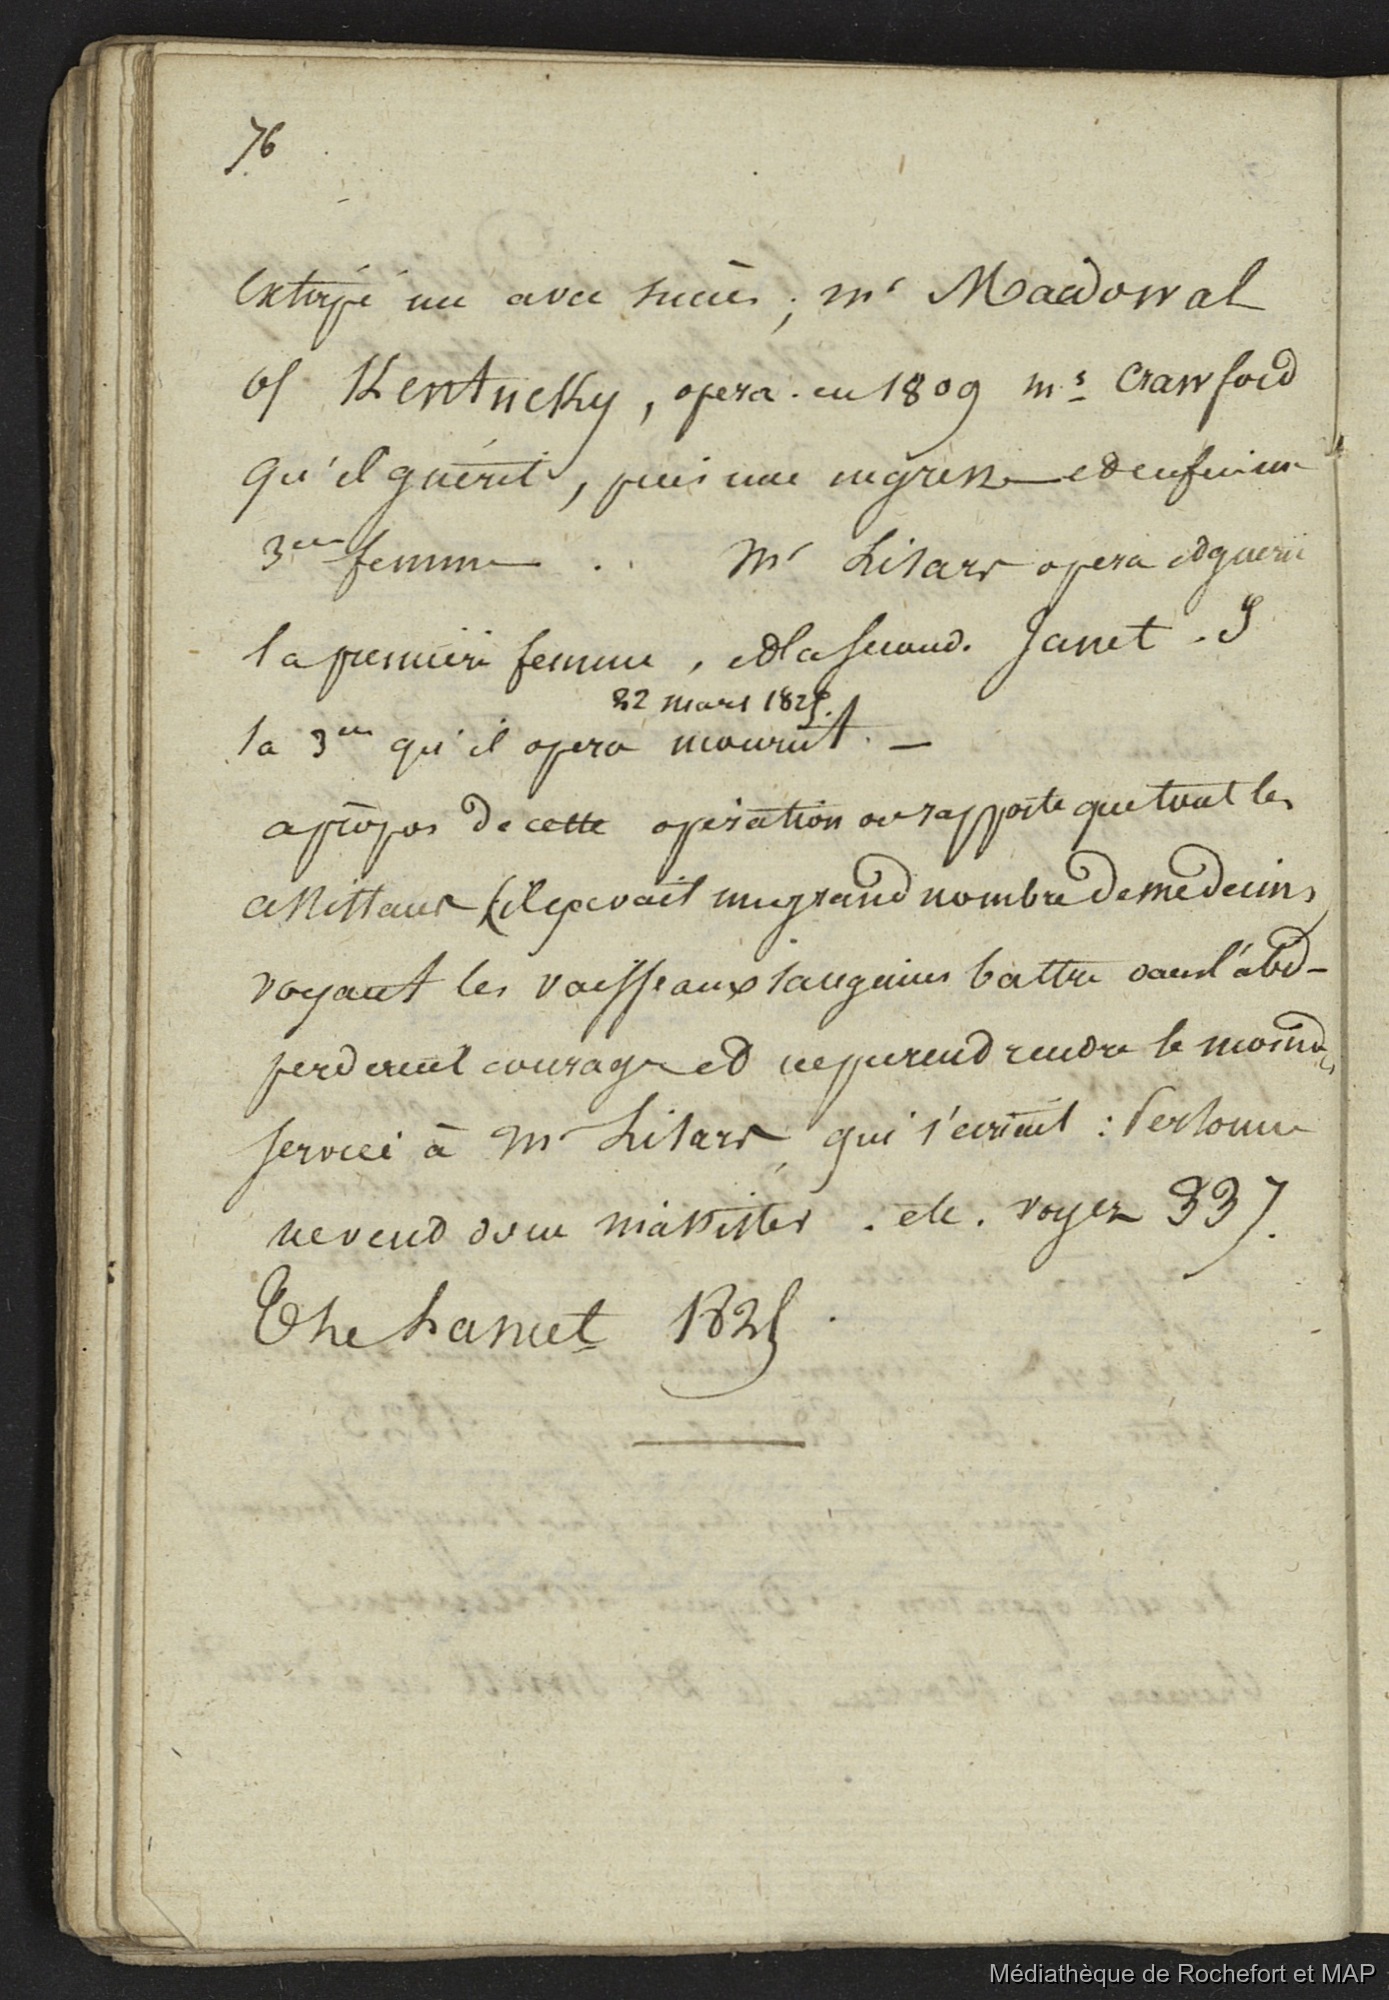 76
Extirpé une avec succès ; mr Macdowal
of Kentucky, opera en 1809 ms Crawford
qu'il guérit, puis une negresse et enfin une
3eme femme . . Mr Lisars opera et guerit
la premiere femme, et la second. Janet . S
22 mars 1825.
la 3eme qu'il opera mourut. —
apropos de cette opération on rapporte que tout les
assistans (il y avait un grand nombre de medecins
voyant les vaisseaux sanguins battre dans l'abd-
perdirent courage et ne purent rendre le moindre
service à Mr Lisars, qui s'écriait : Personne
ne vend donc m'assister . etc. voyez 337.
The Lancet 1825.
Médiathèque de Rochefort et MAP